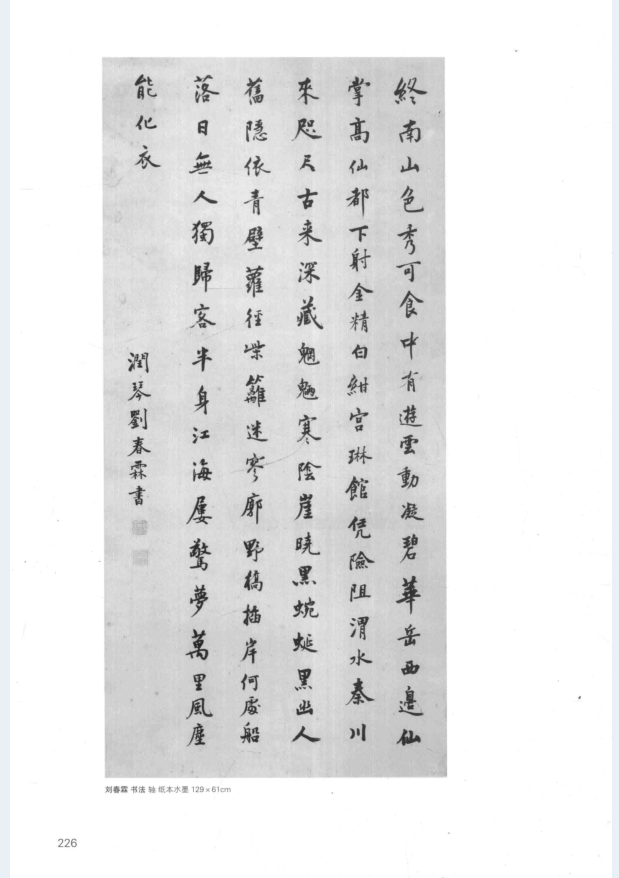 終南山色秀可食中有遊雲動凝碧華岳西邊仙
掌高仙都下射金精白紺宮琳館凭險阻渭水秦川
來咫尺古来深藏魍魎寒陰崖曉黑蜿蜒黑幽人
舊隱依青壁蘿徑柴籬迷寥廓野橋插岸何處船
落日無人獨歸客半身江海屢驚夢萬里風塵
能化衣
潤琴劉春霖書
刘春霖 书法 轴 纸本水墨 129×61cm
226